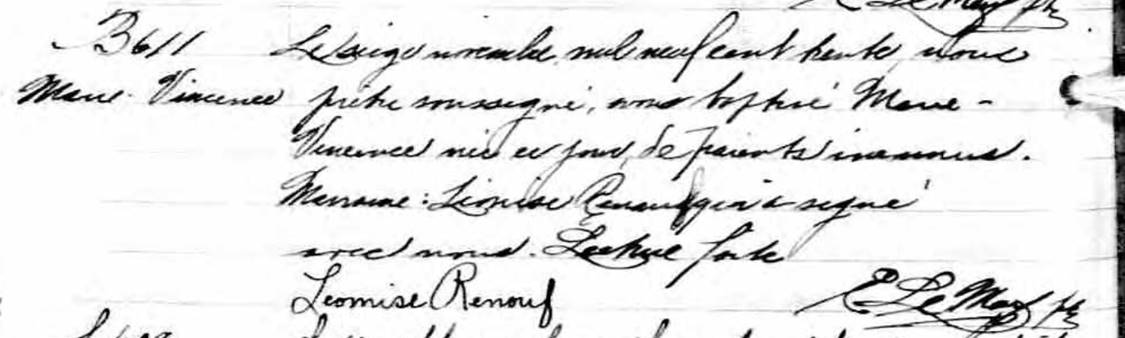 E. LeMay ptr
B611 Le seize novembre mil neuf cent trente nous
Marie-Vincence prêtre soussigné, avons baptisé Marie-
Vincence née ce jour, de parents inconnus.
Marraine: Léonise Renouf qui a signé
avec nous. Lecture faite
Leonise Renouf E. LeMay ptr